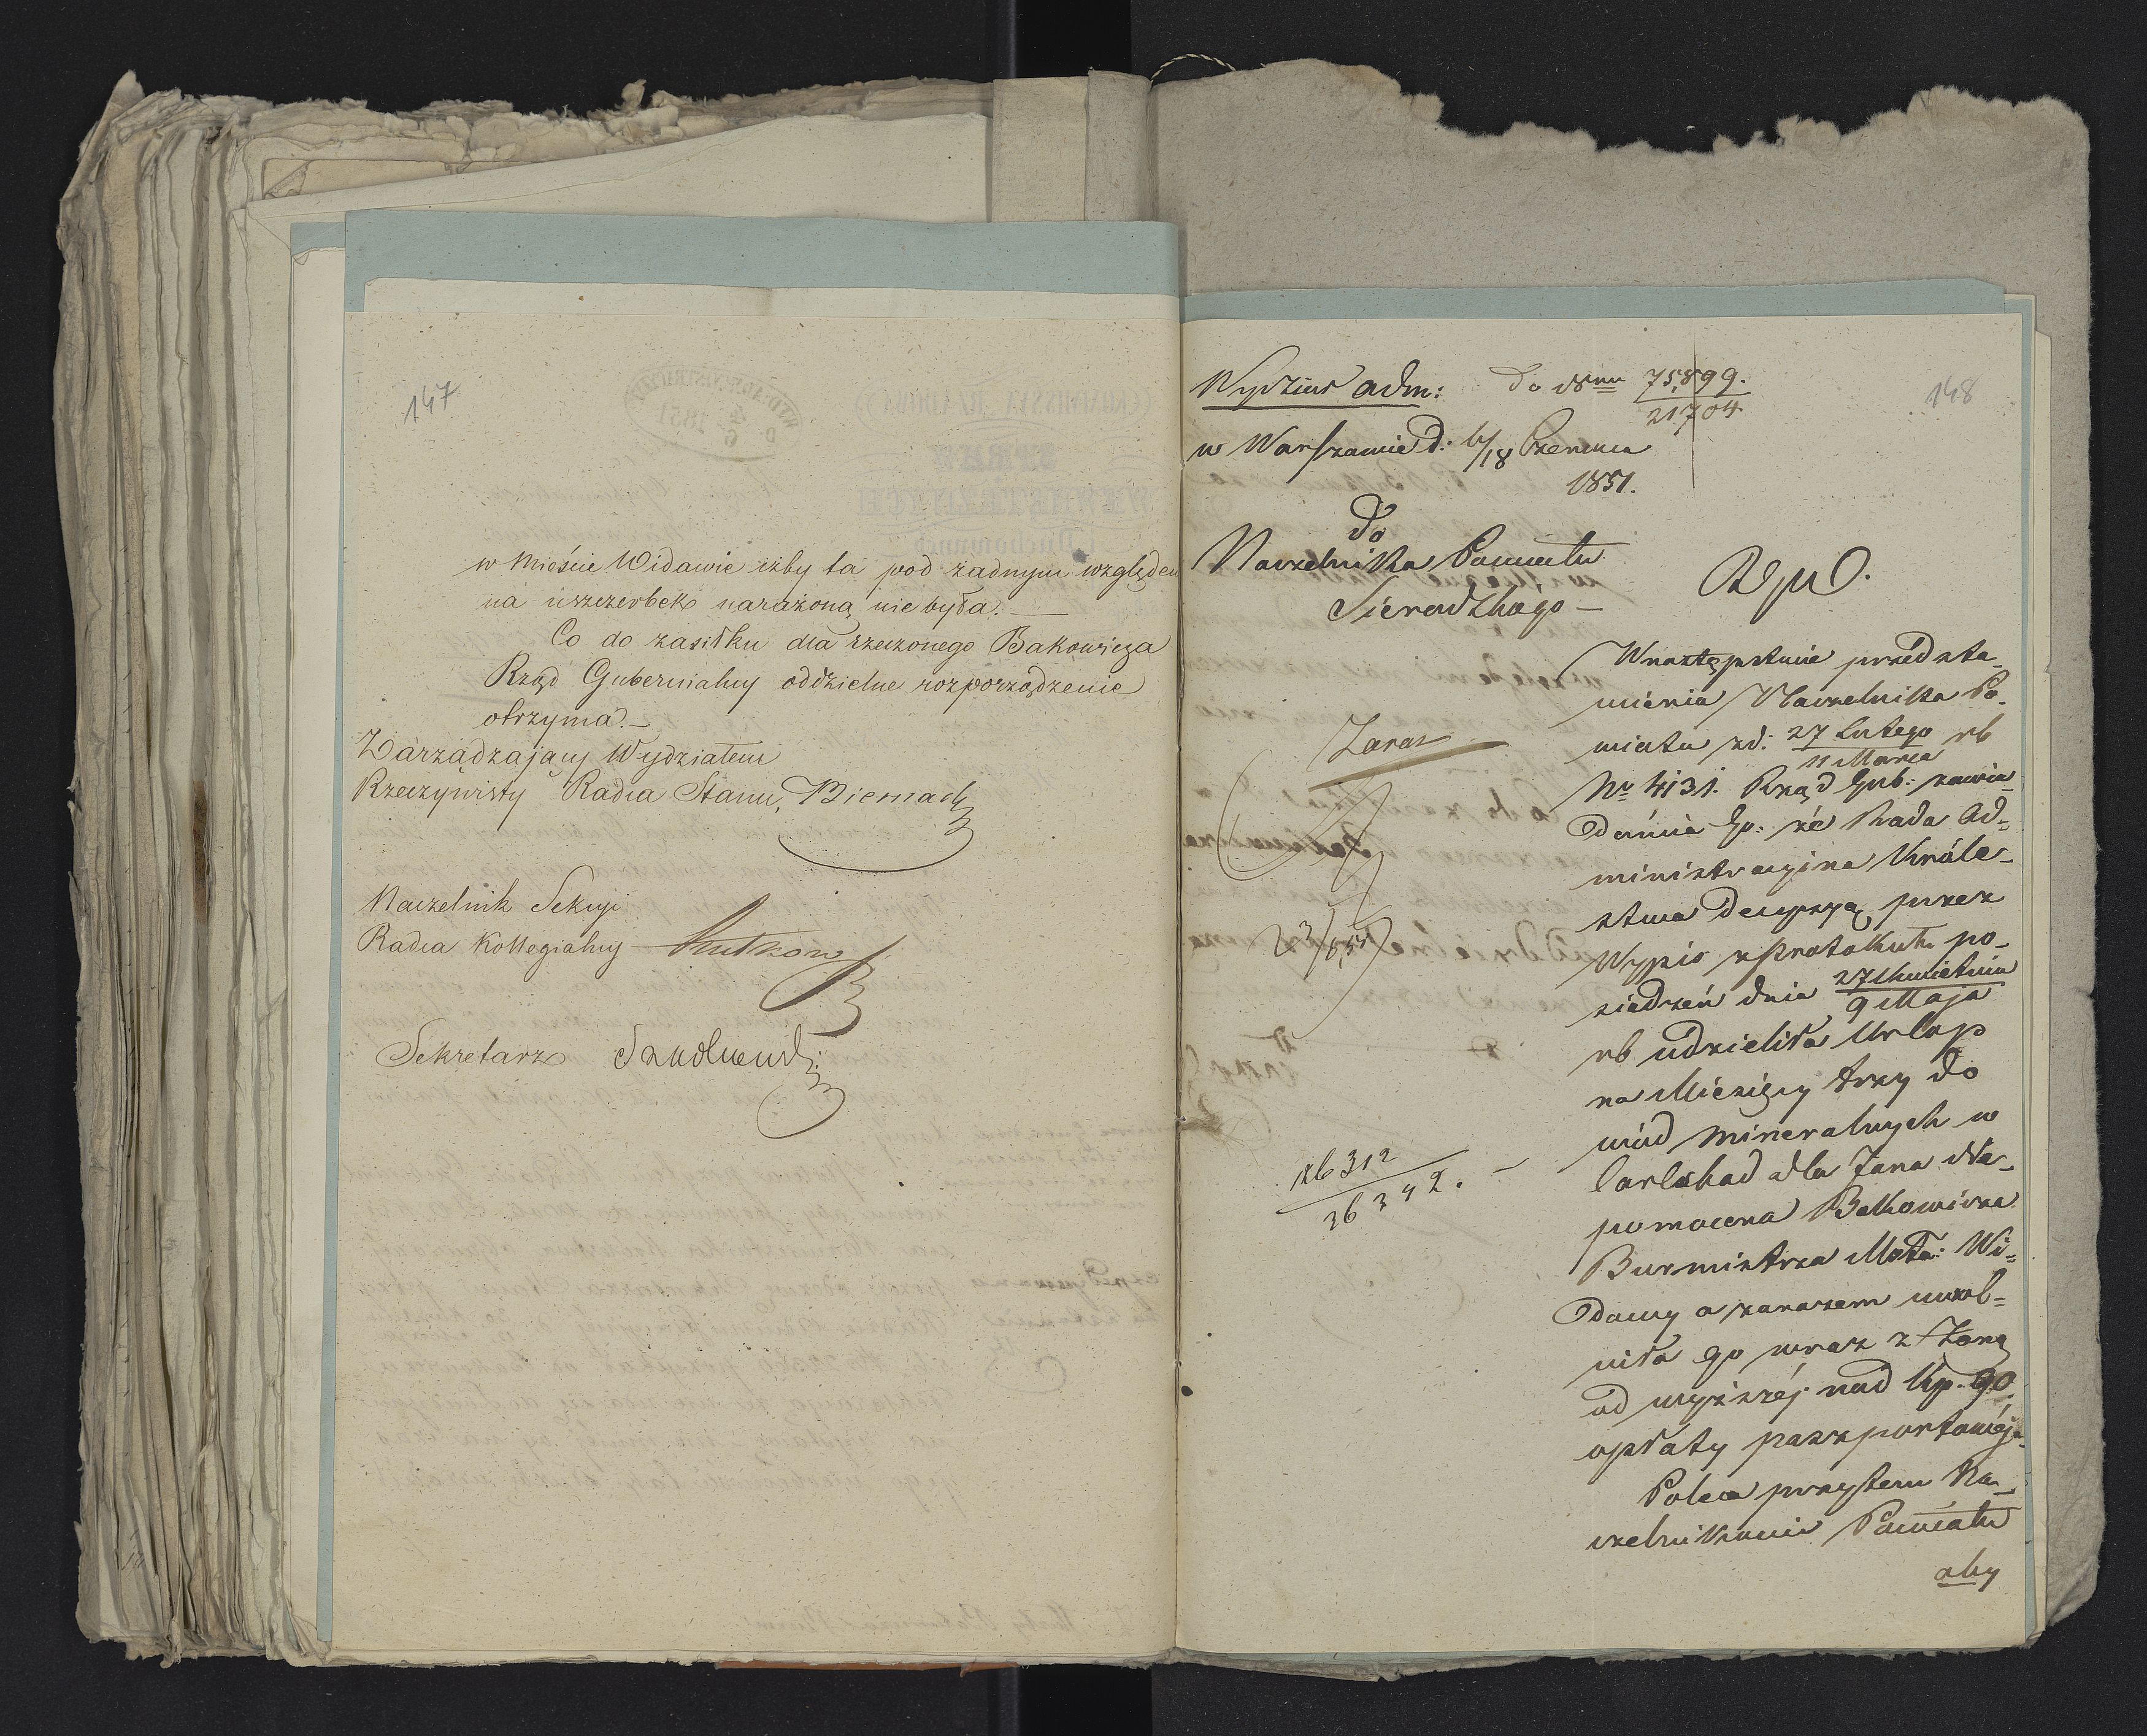 147
w Mieście Widawie iżby ta pod żadnym względem
na uszczerbek narażoną nie była.—
Co do zasiłku dla rzeczonego Bakowicza
Rząd Gubernialny oddzielne rozporządzenie
otrzyma.—
Zarządzający Wydziałem
Rzeczywisty Radca Stanu, Biernacki
Naczelnik Sekcji
Radca Kollegialny
Sekretarz
148
Wydział adm: Do 75,899.
21704
w Warszawie d: 6/18 Czerwca
1851.
Do
Naczelnika Powiatu
Sieradzkiego—
Rpl.
Zaraz
W następstwie przedsta-
wienia Naczelnika Po-
wiatu zd: 27 Lutego rb
11 Marca
Nr 4131. Rząd Gub: zawia-
damia Go: że Rada Ad-
ministracyjna Króle-
stwa decyzyą przez
Wypis z Protokułu po-
siedzeń dnia 27 Kwietnia
9 Maja
rb udzieliła Urlop
na Miesięcy trzy do
wód mineralnych w
Carlsbad dla Jana Ne-
pomucena Bakowicza
Burmistrza Mta: Wi-
dawy a zarazem uwol-
niła go wraz z Żoną
od wyższéj nad Kp. 90
opłaty paszportowéj.
Poleca przytem Na-
czelnikowi Powiatu
aby
26312
36342.—